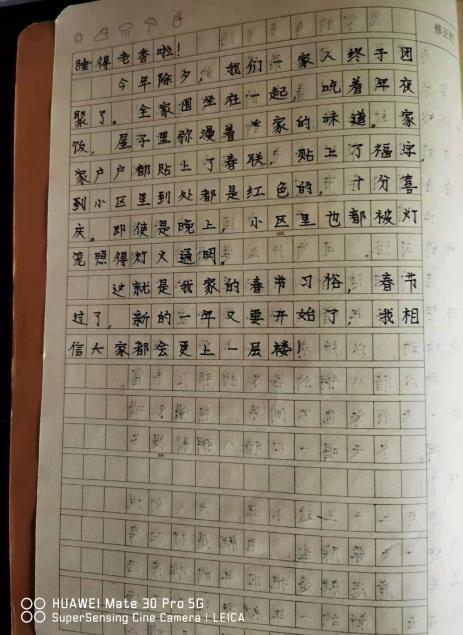 睡得老香啦！
今年除夕，我们一家人终于团
聚了。全家围坐在一起，吃着年夜
饭，屋子里弥漫着家的味道。家
家户户都贴上了春联，贴上了福字，
到小区里到处都是红色的，十分喜
庆。即使是晚上，小区里也都被灯
笼照得灯火通明。
这就是我家的春节习俗，春节
过了，新的一年又要开始了，我相
信大家都会更上一层楼！
修正栏
HUAWEI Mate 30 Pro 5G
SuperSensing Cine Camera | LEICA